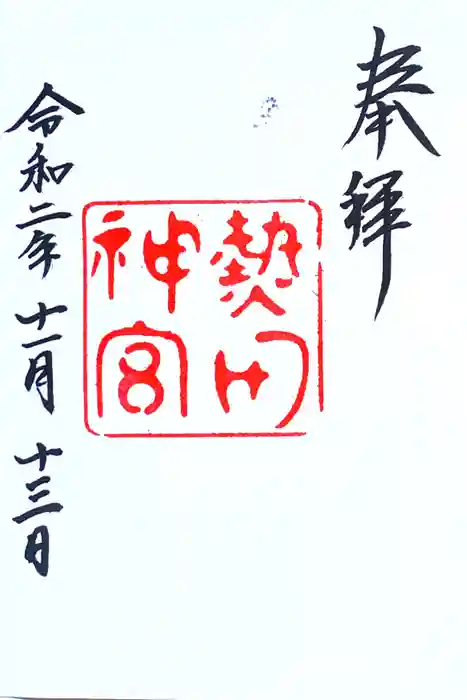 奉拝
熱田
神宮
令和二年十一月十三日